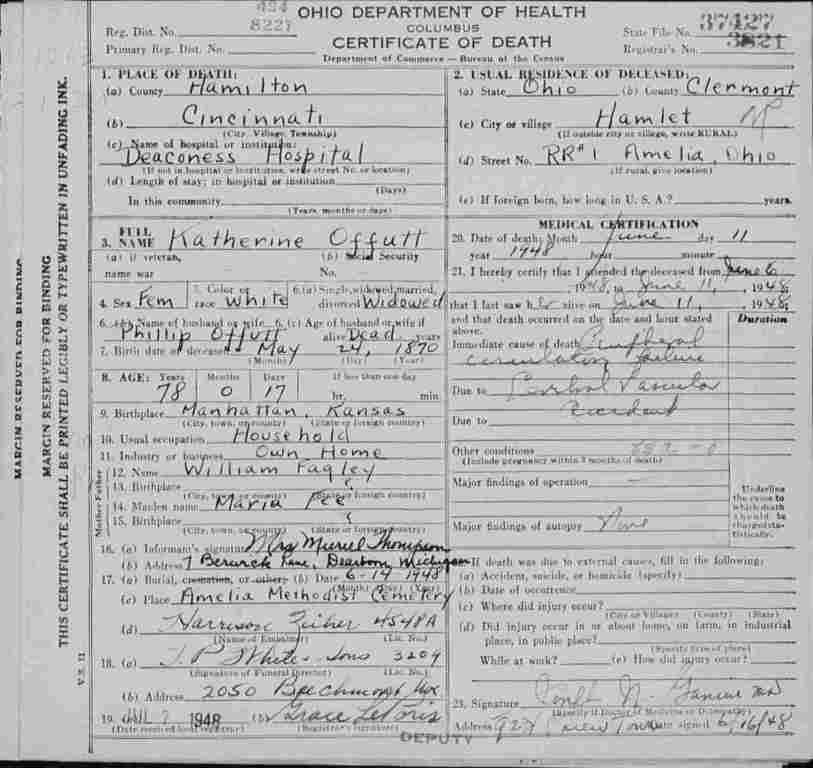 OHIO DEPARTMENT OF HEALTH
COLUMBUS
CERTIFICATE OF DEATH
Department of Commerce — Bureau of the Census
Reg. Dist. No.
8221
Primary Reg. Dist. No.
State File No. 37427
Registrar's No. 3821
MARGIN RESERVED FOR BINDING
MARGIN RESERVED FOR BINDING
THIS CERTIFICATE SHALL BE PRINTED LEGIBLY OR TYPEWRITTEN IN UNFADING INK.
V.S. 11
1. PLACE OF DEATH:
(a) County Hamilton
(b) Cincinnati
(City, Village, Township)
(c) Name of hospital or institution:
Deaconess Hospital
(If not in hospital or institution, write street No. or location)
(d) Length of stay: in hospital or institution
(Days)
In this community.
(Years, months or days)
2. USUAL RESIDENCE OF DECEASED:
(a) State Ohio (b) County Clermont
(c) City or village Hamlet
(If outside city or village, write RURAL)
(d) Street No. RR#1 Amelia, Ohio
(If rural, give location)
(e) If foreign born, how long in U. S. A.? years.
3. FULL NAME Katherine Offutt
(a) If veteran, name war
(b) Social Security No.
4. Sex Fem
5. Color or race White
6. (a) Single, widowed, married, divorced Widowed
6. (b) Name of husband or wife
Phillip Offutt
6. (c) Age of husband or wife if alive Dead years
7. Birth date of deceased May 24, 1870
(Month) (Day) (Year)
8. AGE: Years Months Days If less than one day
78 0 17 hr. min.
9. Birthplace Manhattan, Kansas
(City, town, or county) (State or foreign country)
10. Usual occupation Household
11. Industry or business Own Home
Father
12. Name William Fagley
13. Birthplace
(City, town, or county) (State or foreign country)
Mother
14. Maiden name Maria Fee
15. Birthplace
(City, town, or county) (State or foreign country)
16. (a) Informant's signature Mrs Muriel Thompson
(b) Address Dearborn, Michigan
17. (a) Burial, cremation, or other (b) Date 6-14 1948
(Month) (Day) (Year)
(c) Place Amelia Methodist Cemetery
(d) Harrison 4548A
(Name of Embalmer) (Lic. No.)
18. (a) T. P. White + Sons 3204
(Signature of Funeral Director) (Lic. No.)
(b) Address 2050 Beechmont Ave
19. 1948 (b) Grace
(Date received local registrar) (Registrar's signature)
DEPUTY
MEDICAL CERTIFICATION
20. Date of death: Month June day 11
year 1948 hour minute
21. I hereby certify that I attended the deceased from June 6
, 1948, to June 11, , 1948;
that I last saw her alive on June 11, , 1948;
and that death occurred on the date and hour stated above.
Duration
Immediate cause of death Peripheral
circulatory failure
Due to Cerebral Vascular
Accident
Due to
Other conditions
(Include pregnancy within 3 months of death)
Major findings of operation —
Major findings of autopsy None
Underline the cause to which death should be charged statistically.
If death was due to external causes, fill in the following:
(a) Accident, suicide, or homicide (specify)
(b) Date of occurrence
(c) Where did injury occur?
(City or Village) (County) (State)
(d) Did injury occur in or about home, on farm, in industrial place, in public place?
(Specify type of place)
While at work? (e) How did injury occur?
23. Signature
(Specify if Doctor of Medicine or Osteopathy)
Address Date signed 6/16/48